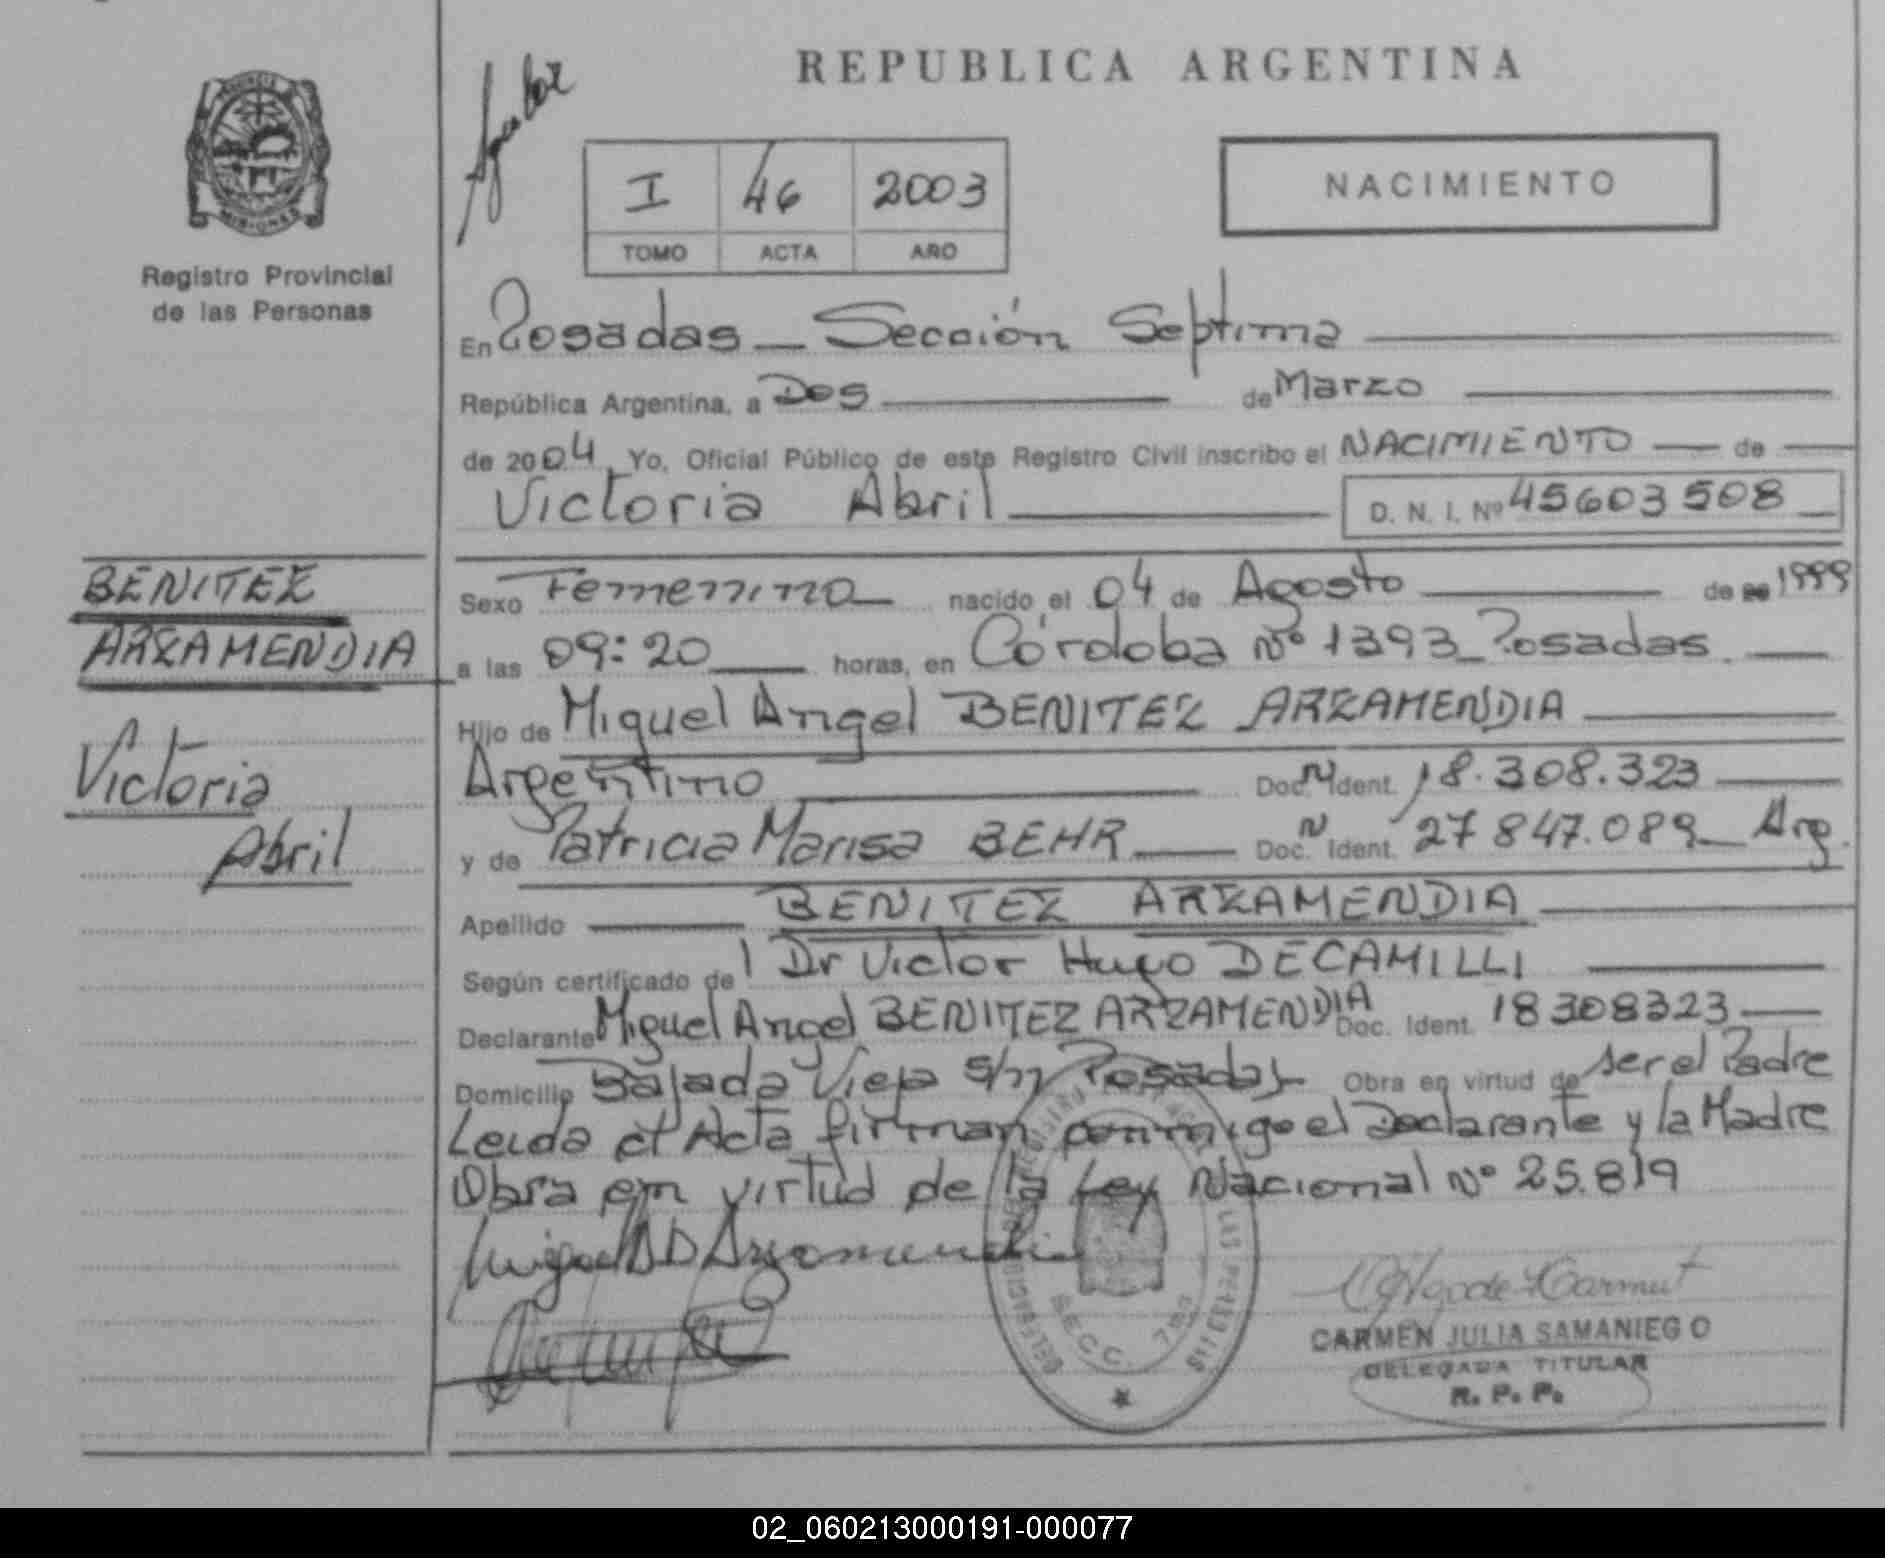 REPUBLICA ARGENTINA
I 46 2003
TOMO ACTA AÑO
NACIMIENTO
MISIONES
Registro Provincial
de las Personas
En Posadas _ Sección Septima
República Argentina, a Dos de Marzo
de 2004, Yo, Oficial Público de este Registro Civil inscribo el NACIMIENTO de
Victoria Abril D. N. I. Nº 45603508
BENITEZ
ARZAMENDIA
Victoria
Abril
Sexo Femenino nacido el 04 de Agosto de 1999
a las 09:20 horas, en Córdoba Nº 1393_Posadas.
Hijo de Miguel Angel BENITEZ ARZAMENDIA
Argentino Doc. N Ident. 18.308.323
y de Patricia Marisa BEHR Doc. N Ident. 27847.089_ Arg.
Apellido BENITEZ ARZAMENDIA
Según certificado de l Dr Victor Hugo DECAMILLI
Declarante Miguel Angel BENITEZ ARZAMENDIA Doc. Ident. 18308323
Domicilio Bajada Vieja S/n Posadas Obra en virtud de ser el Padre
Leida el Acta firman conmigo el Declarante y la Madre
Obra en virtud de la Ley Nacional Nº 25.819
Miguel A B Arzamendia
SECC. 7
LAS PERSONAS
CARMEN JULIA SAMANIEGO
DELEGADA TITULAR
R. P. P.
02_060213000191-000077